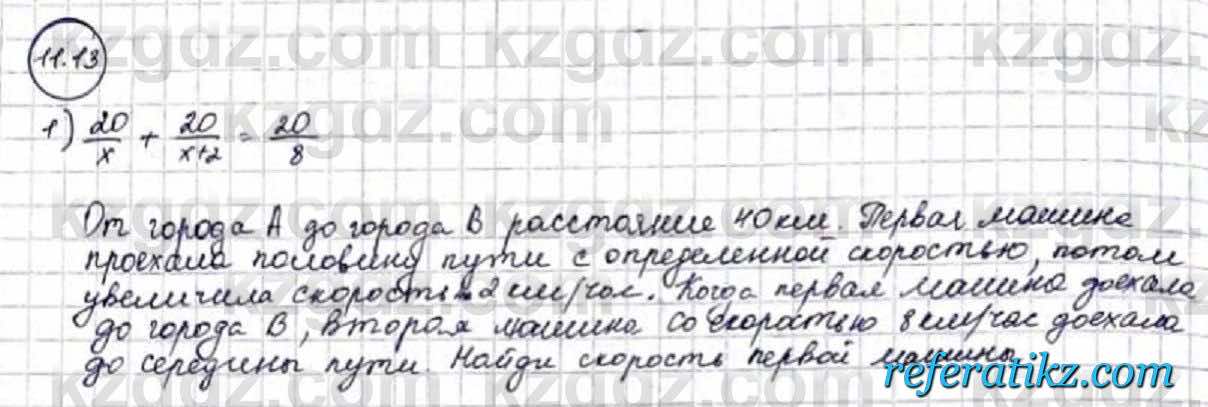 kzgdz.com kzgdz.com kzgdz.com
11.13
1) 20/x + 20/(x+2) = 20/8
От города А до города В расстояние 40 км. Первая машина
проехала половину пути с определенной скоростью, потом
увеличила скорость на 2 км/час. Когда первая машина доехала
до города В, вторая машина со скоростью 8 км/час доехала
до середины пути. Найди скорость первой машины.
referatikz.com